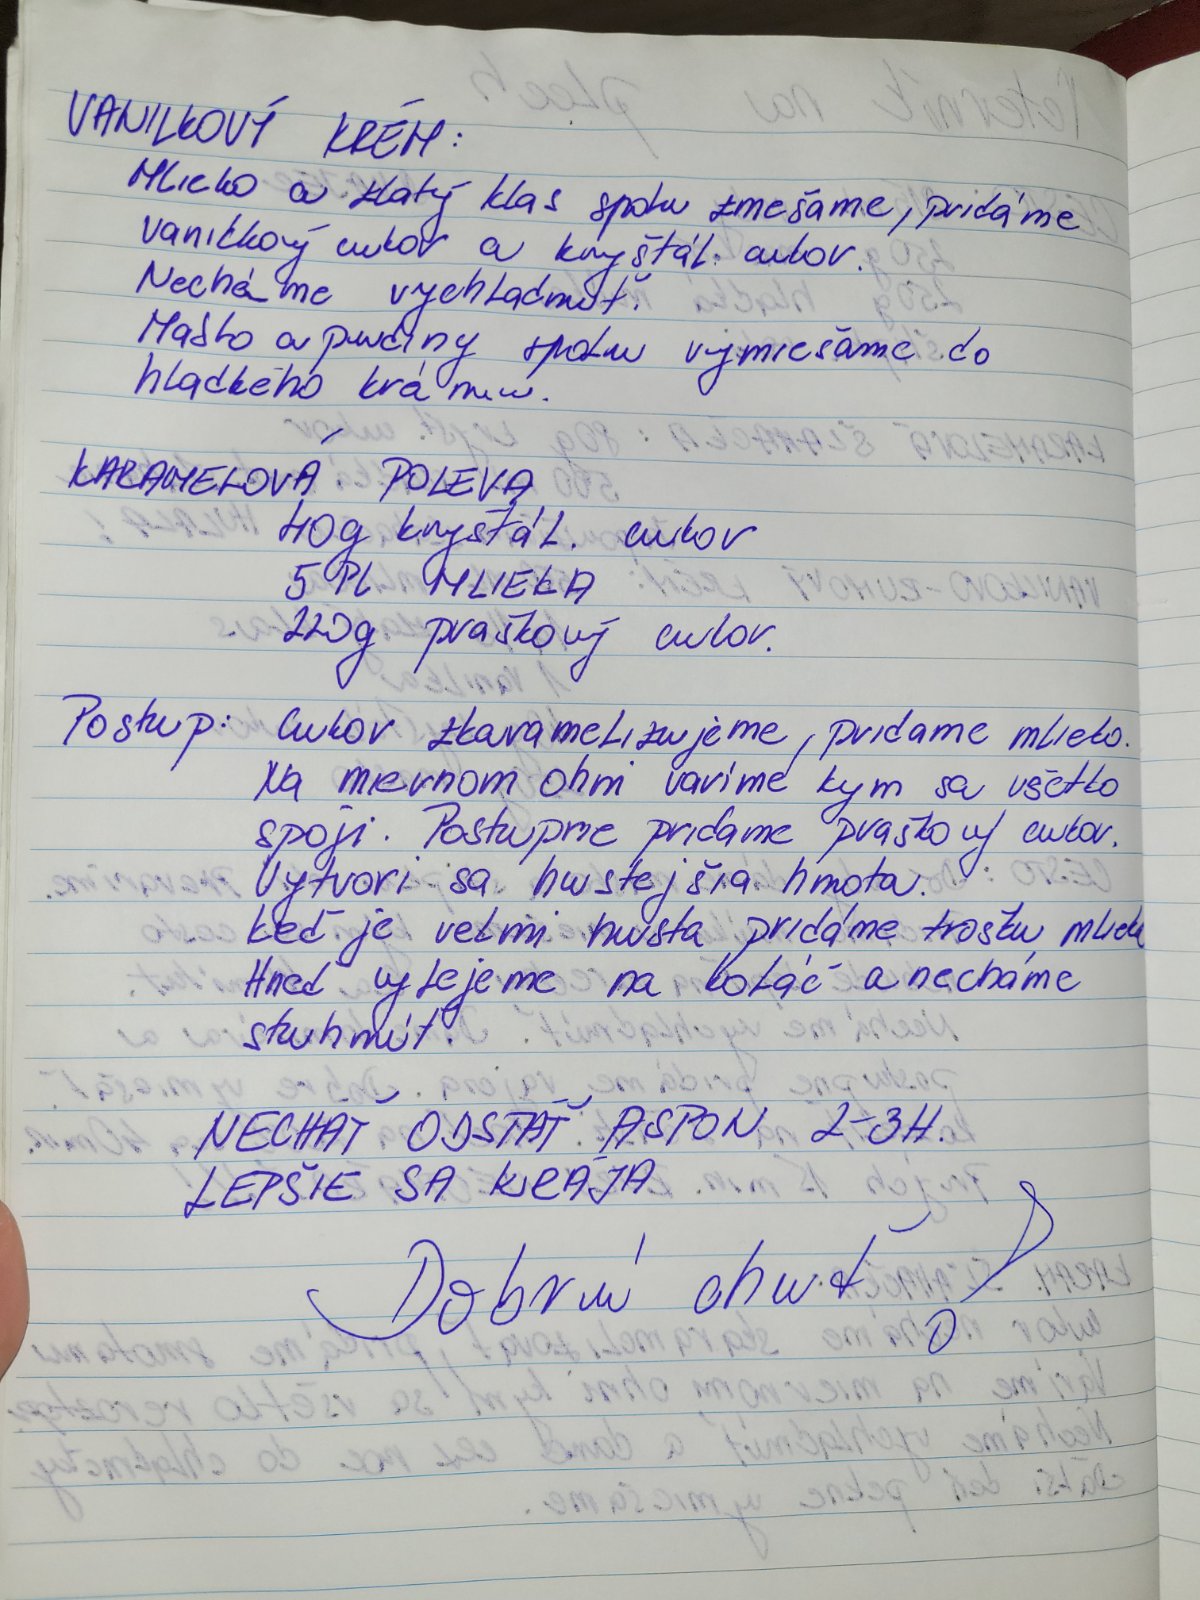 VANILKOVÝ KRÉM:
Mlieko a zlatý klas spolu zmešáme, pridáme
vanilkový cukor a kryštál. cukor.
Necháme vychladnúť.
Maslo a pudiny spolu vymiešáme do
hladkého krému.
KARAMELOVÁ POLEVA
40g kryštál. cukor
5 PL MLIEKA
220g praškový cukor.
Postup: Cukor zkaramelizujeme, pridame mlieko.
Na miernom ohni varíme kym sa všetko
spojí. Postupne pridame praškový cukor.
Vytvori sa hustejšia hmota.
Keď je velmi husta pridáme trošku mlieka
Hneď vylejeme na koláč a necháme
stuhnúť.
NECHAŤ ODSTÁŤ ASPON 2-3H.
LEPŠIE SA KRÁJA
Dobrú chuť!